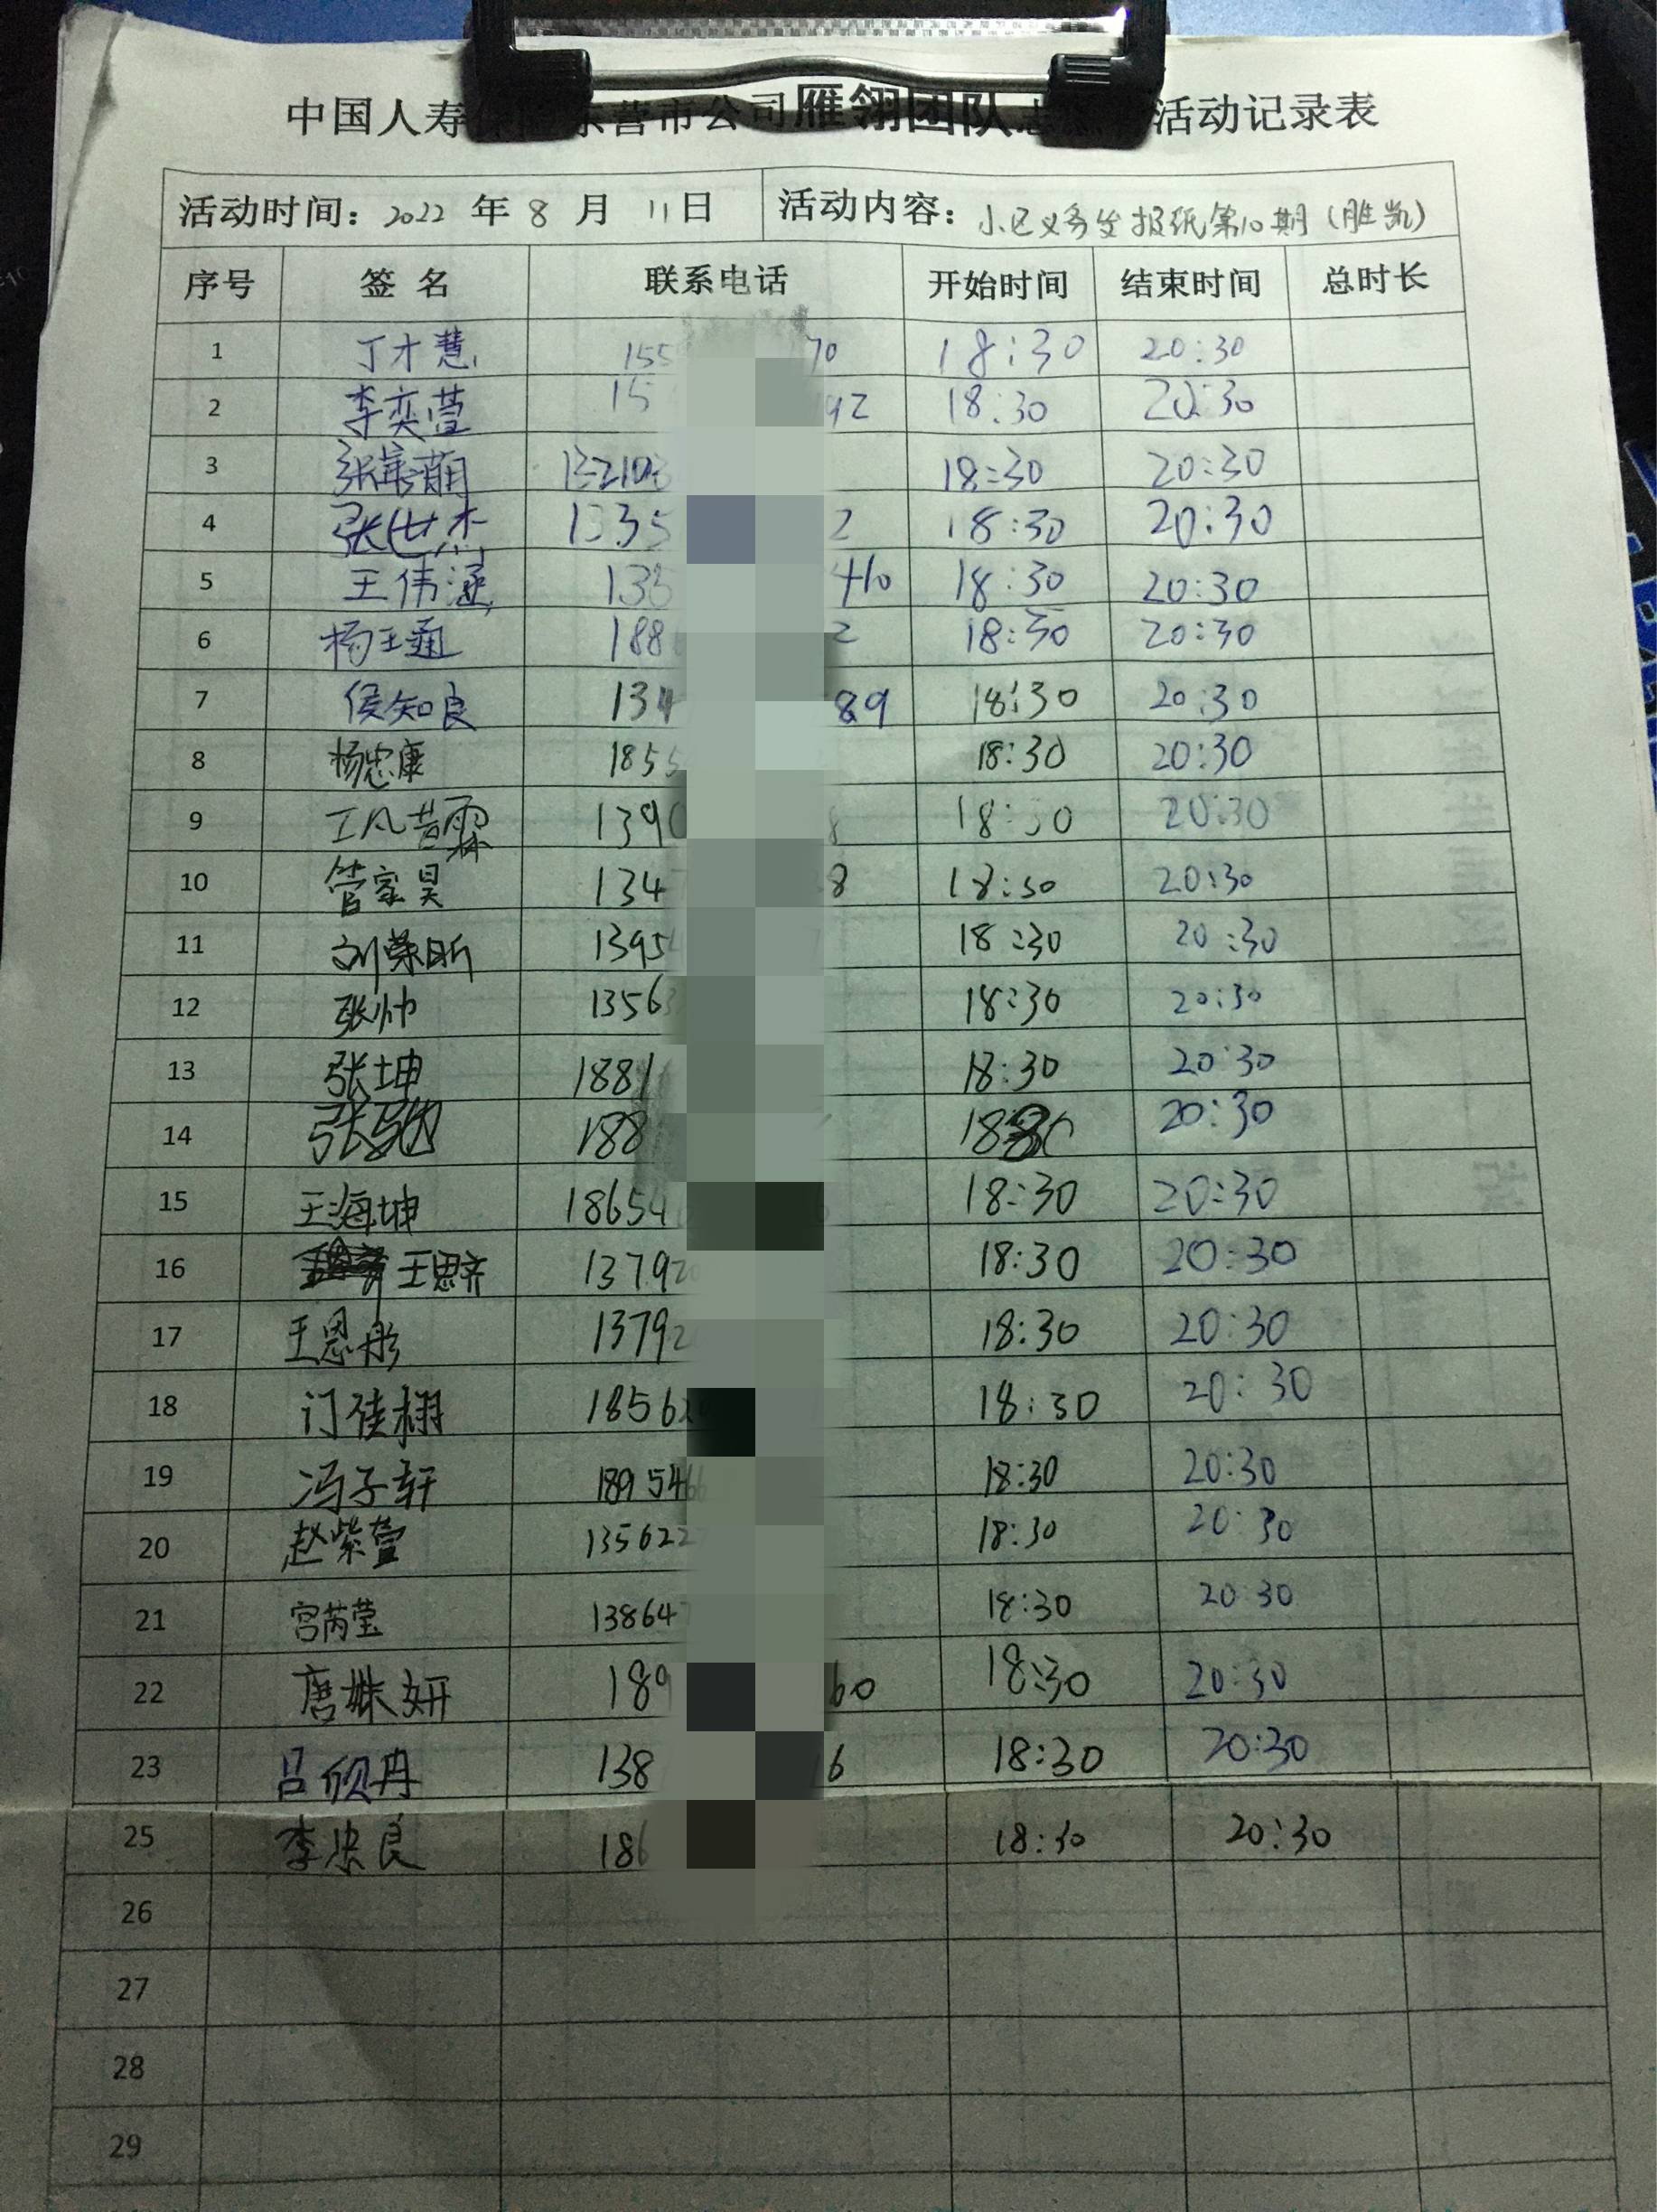 中国人寿 东营市公司雁翎团队志 活动记录表
活动时间：2022 年 8 月 11日 活动内容：小区义务发报纸第10期（胜凯）
序号 签 名 联系电话 开始时间 结束时间 总时长
1 丁才慧 155 70 18:30 20:30
2 李奕萱 15 92 18:30 20:30
3 132103 18:30 20:30
4 张世杰 1335 2 18:30 20:30
5 王伟涵 133 410 18:30 20:30
6 杨玉通 188 2 18:30 20:30
7 侯知良 134 89 18:30 20:30
8 杨忠康 1855 18:30 20:30
9 139 8 18:30 20:30
10 管家昊 134 8 18:30 20:30
11 刘荣昕 1395 18:30 20:30
12 张帅 1356 18:30 20:30
13 张坤 1881 18:30 20:30
14 188 20:30
15 王海坤 18654 18:30 20:30
16 王思齐 13792 18:30 20:30
17 王恩彤 13792 18:30 20:30
18 门佳栩 18562 18:30 20:30
19 冯子轩 189546 18:30 20:30
20 赵紫萱 135622 18:30 20:30
21 宫芮莹 138647 18:30 20:30
22 唐姝妍 189 60 18:30 20:30
23 吕欣冉 138 6 18:30 20:30
25 李忠良 186 18:30 20:30
26
27
28
29